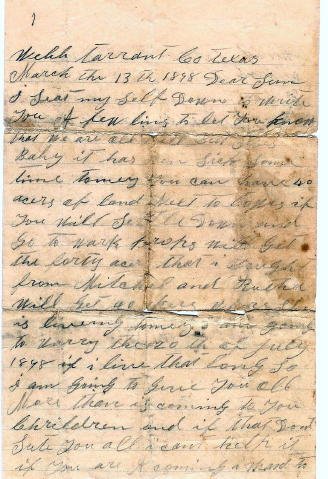 Webb Tarrant Co Texas
March the 13 th 1898 Dear Sun
I Seat my Self Down to write
You A few lins to let You know
that We are all
Baby it has ben Sick Some
time tomey You can have 40
acers of land Next to if
You will Settle Down and
Go to Wark will Get
the forty acers that i bought
from Mitchel and
Will Get 40 Here
is liveing tomey i am going
to Marry the 20 th of july
1898 if i live that long So
I am going to give You all
More than is coming to You
Childrien and if that Dont
Sute You all i cant help it
if You are A coming i want to